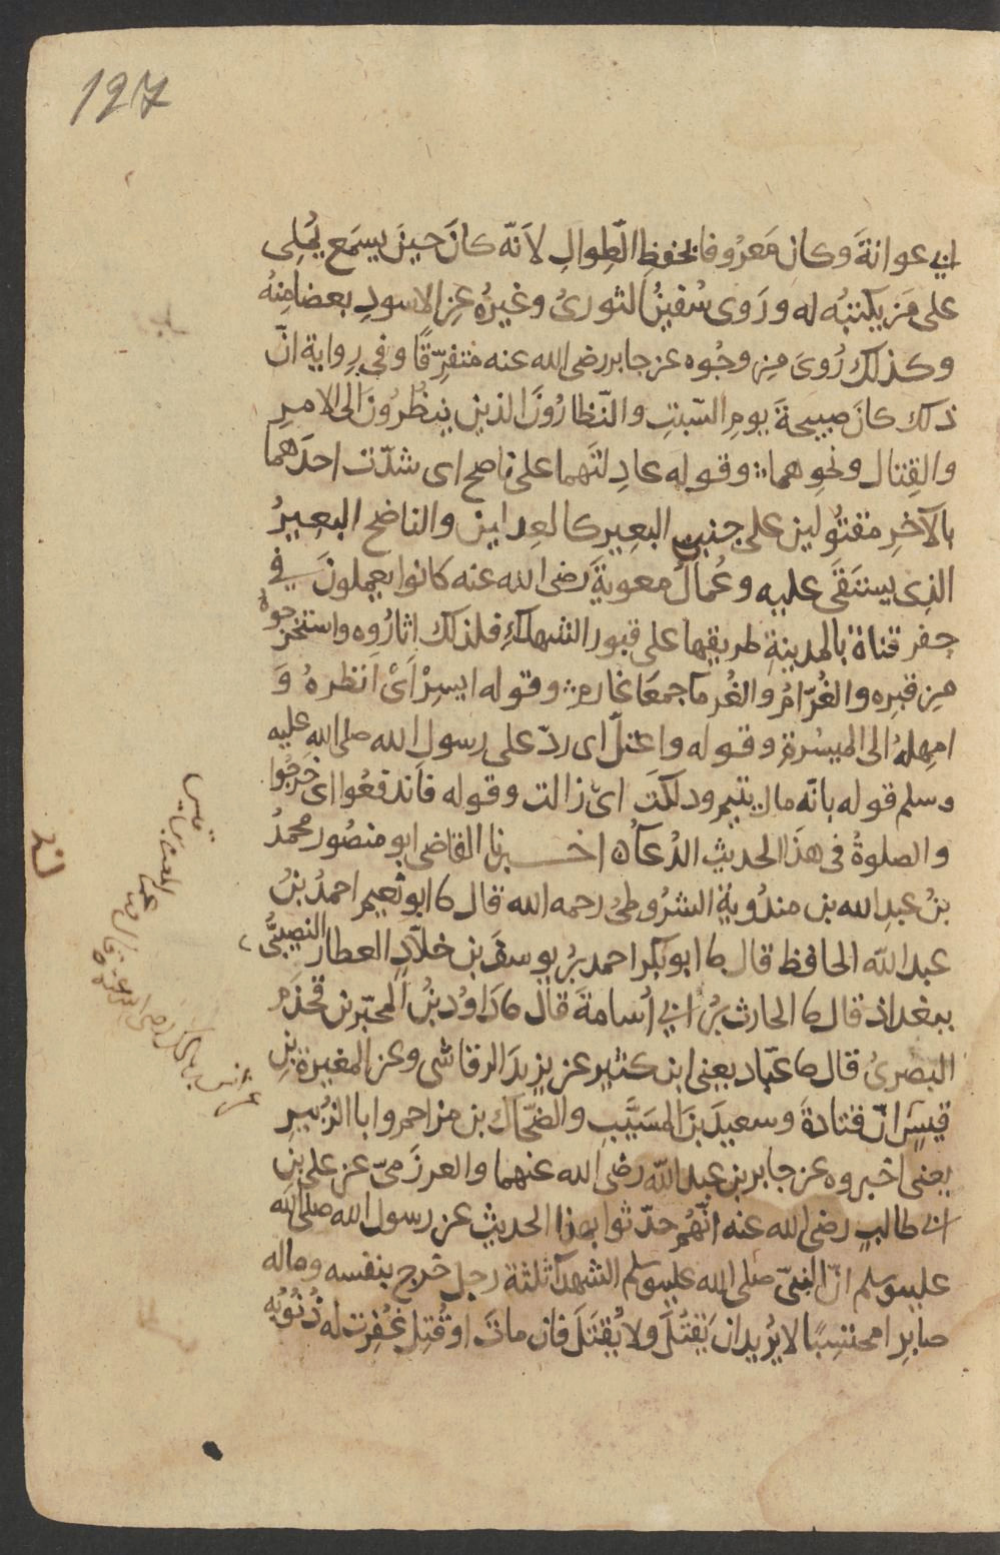 127
ابي عوانةَ وكان مَعرُوفا بحفظِ الطِّوالِ لاَنّه كانَ حينَ يسمَع يُملِى
على مَن يكتبُه له ورَوى سُفينُ الثورىُ وغيرُه عن الاسودِ بعضا مِنهُ
وكذلك رُوىَ مِن وجُوه عن جابر رضى الله عنه متفرِّقًا وفى رِواية انّ
ذلك كانَ صبيحةَ يومِ السّبتِ والنّظارُونَ الذين ينظُرُونَ الى الامرِ
والقِتال ونحوهما وقوله عادِلتَهما على ناضح اى شدّت احدَهما
بالآخرِ مقتُولين على جنبى البعِير كالعِدلين والناضح البعِيرُ
الذى يستَقَى عليه وعُمالُ معويةَ رضى الله عنه كانوا يعملونَ فى
حفر قناة بالمدينةِ طريقها على قبور الشهدآءِ فلذلك اثارُوه واستخرجوهُ
مِن قبرِه والغُرّامُ والغُرمآ جمعَا غارم وقوله ايسِرْ اَىْ اَنظره وَ
امهلهُ الى الميسُرة وقوله واعتلّ اى ردّ على رسول الله صلى الله عليه
وسلم قوله بانّه مال يتيم ودلكَت اىْ زالت وقوله فاندفعُوا اى خرجُوا
والصلوةُ فى هذَا الحديث الدُعآء اخـــبرنا القاضى ابو منصُور محمدُ
بنُ عبدِ الله بن مندُوية الشرُوطىُ رحمه الله قال نا ابو نُعيم احمدُ بنُ
عبد الله الحافظ قال نا ابو بكر احمد بنُ يوسفَ بن خلّادٍ العطار النصيبىُّ
ببغداذ قال نا الحارث بنُ ابي اُسامةَ قال نا دَاوُد بنُ المحبّر بن قحذَم
البصرىُ قال نا عبّاد يعنى ابن كثير عن يزيدَ الرقاشى وعن المغيرة بنِ
قيسٍ انّ قتادةَ وسعيدَ بنَ المسَيَّبِ والضحّاك بن مزاحمٍ وابا الزُبيرِ
يعنى اخبروه عن جابر بن عبد الله رضى الله عنهما والعرزَمىّ عن على بنِ
ابى طالبٍ رضى الله عنه انّهُم حدّثوا بهذا الحديث عن رسول الله صلى الله
عليه وسلم انّ النبىّ صلى الله عليه وسلم الشهدآ ثلثة رجل خرج بنفسه وماله
صابرا محتسِبًا لا يُريد ان يَقتُلَ ولا يُقتَلَ فان ماتَ او قُتِل غُفِرت له ذُنُوبُه